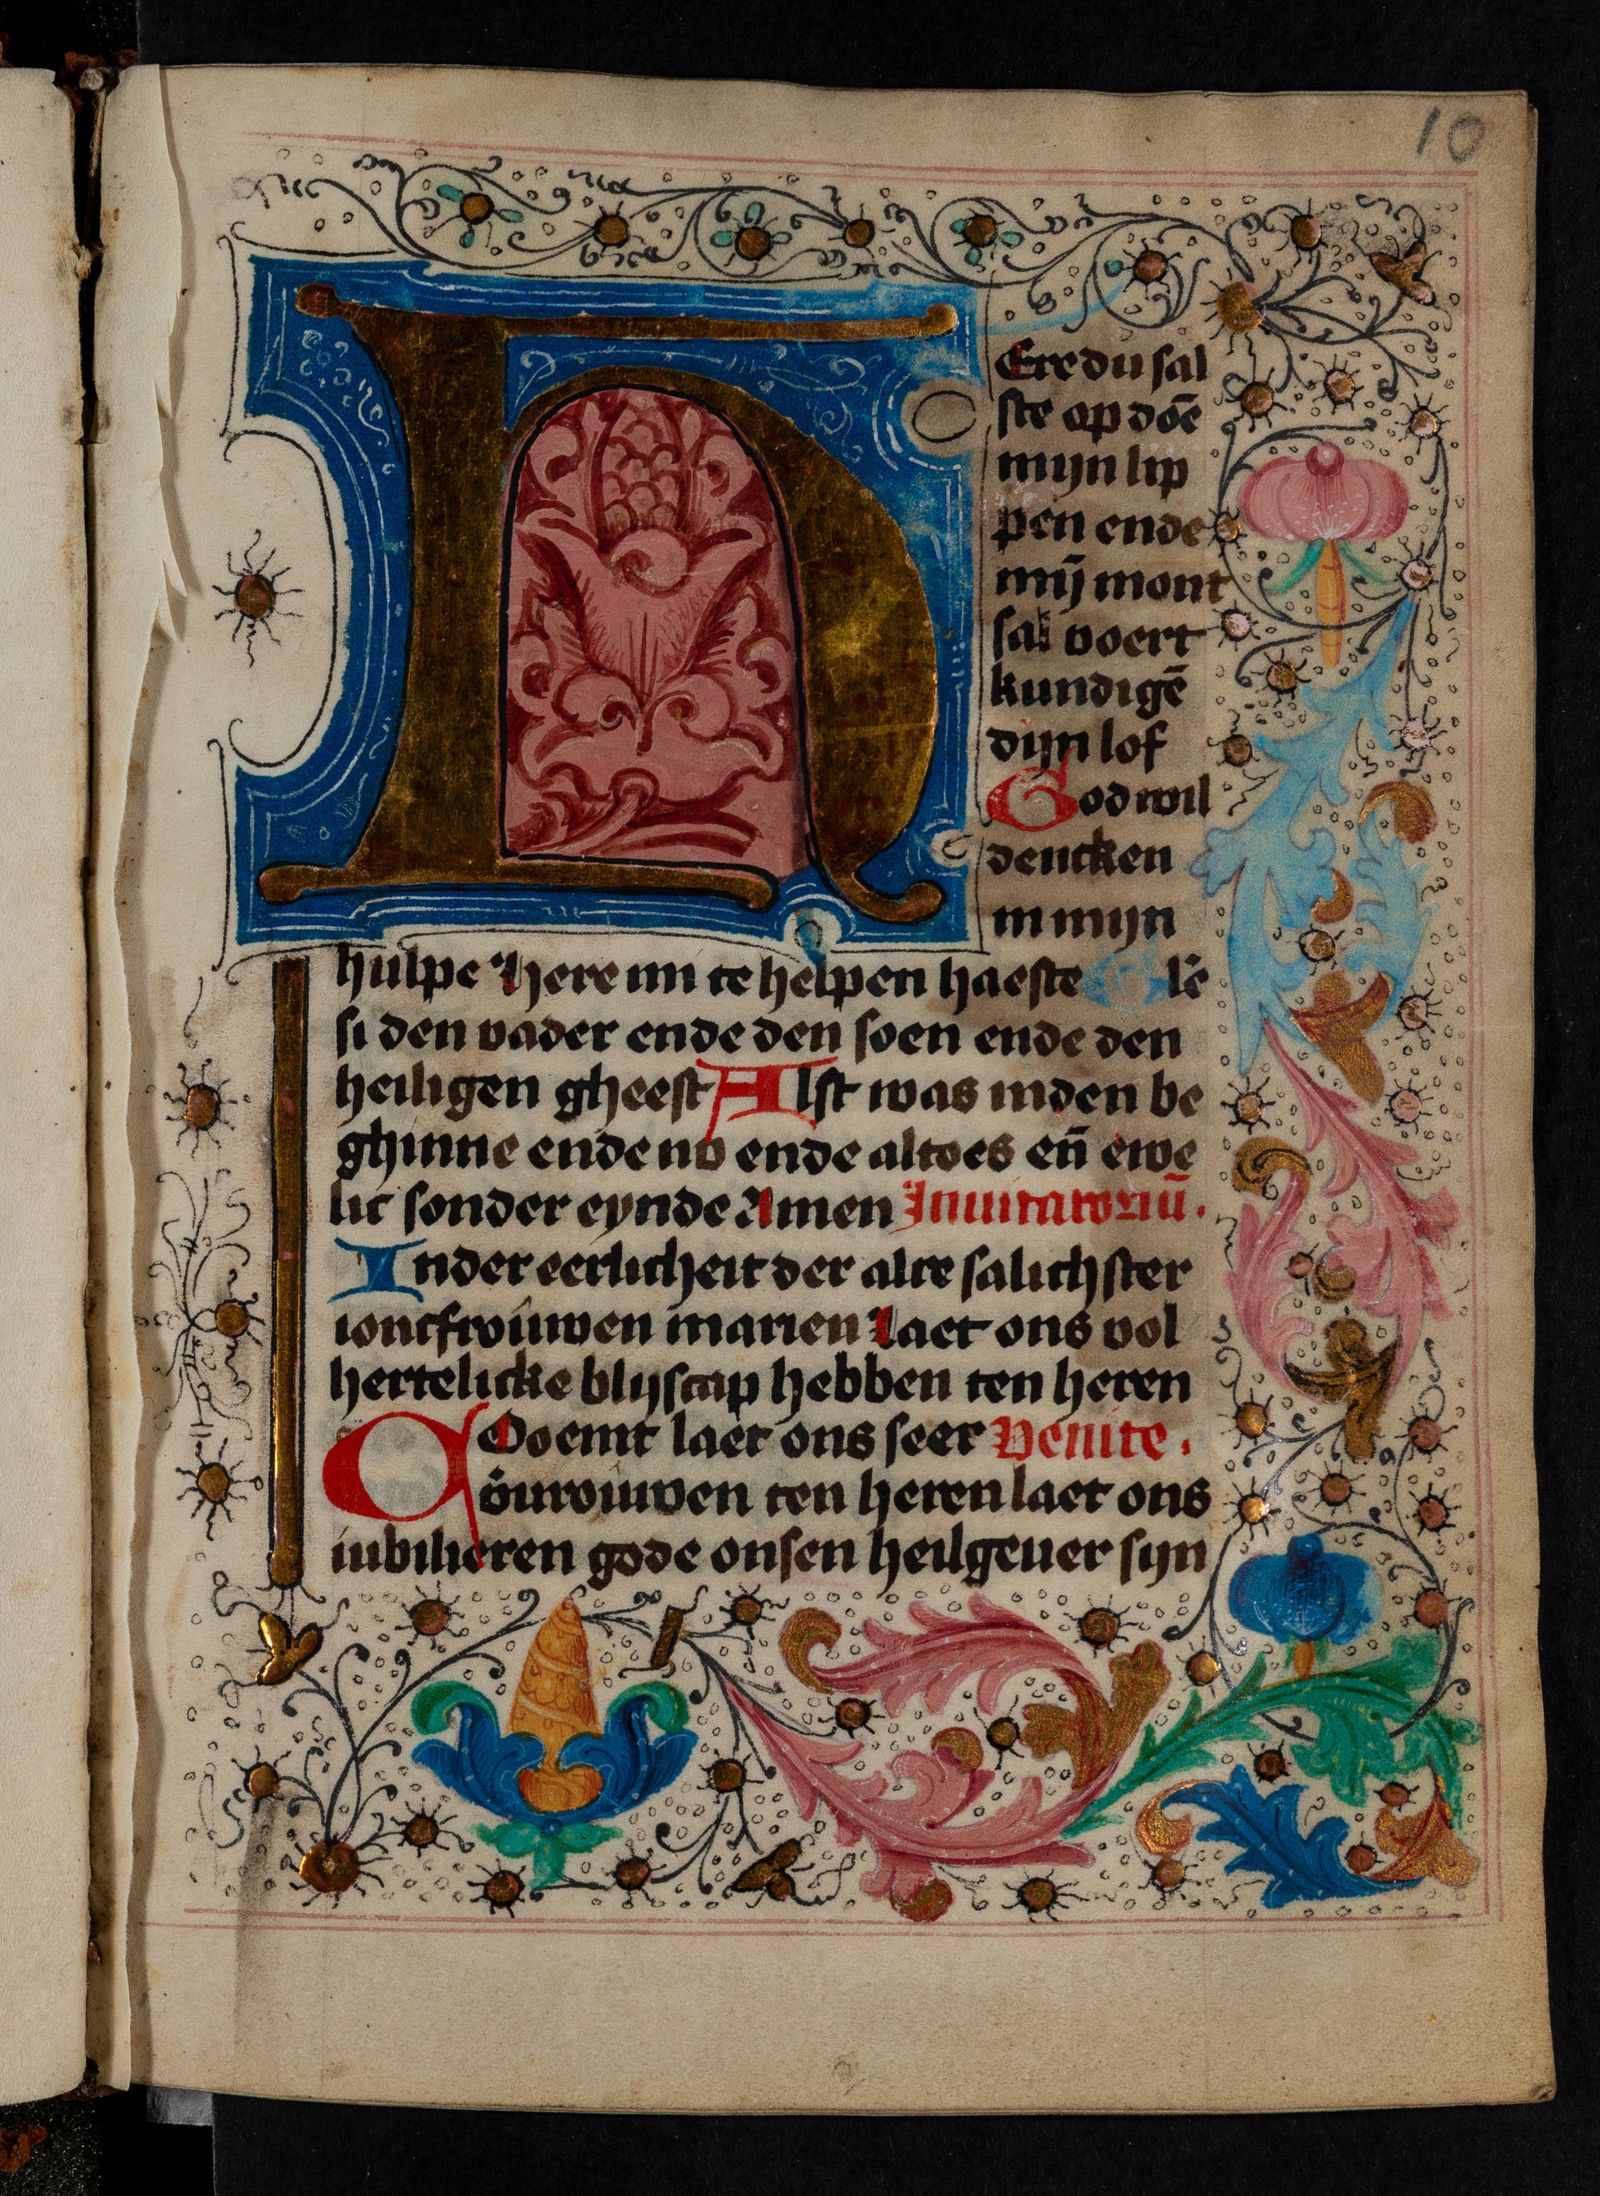 10
HEre du sal
ste op doē
mijn lip
pen ende
mij̄ mont
sal voert
kundigē
dijn lof
God wil
dencken
in mijn
hulpe here mi te helpen haeste Glē
si den vader ende den soen ende den
heiligen gheest Alst was inden be
ghinne ende nv ende altoes eñ ewe
lic sonder eynde Amen Inuitatoriū.
In der eerlicheit der alre salichster
ioncfrouwen marien Laet ons vol
hertelicke blijscap hebben ten heren
Coemt laet ons seer Venite.
vrouwen ten heren laet ons
iubilieren gode onsen heilgeuer sijn